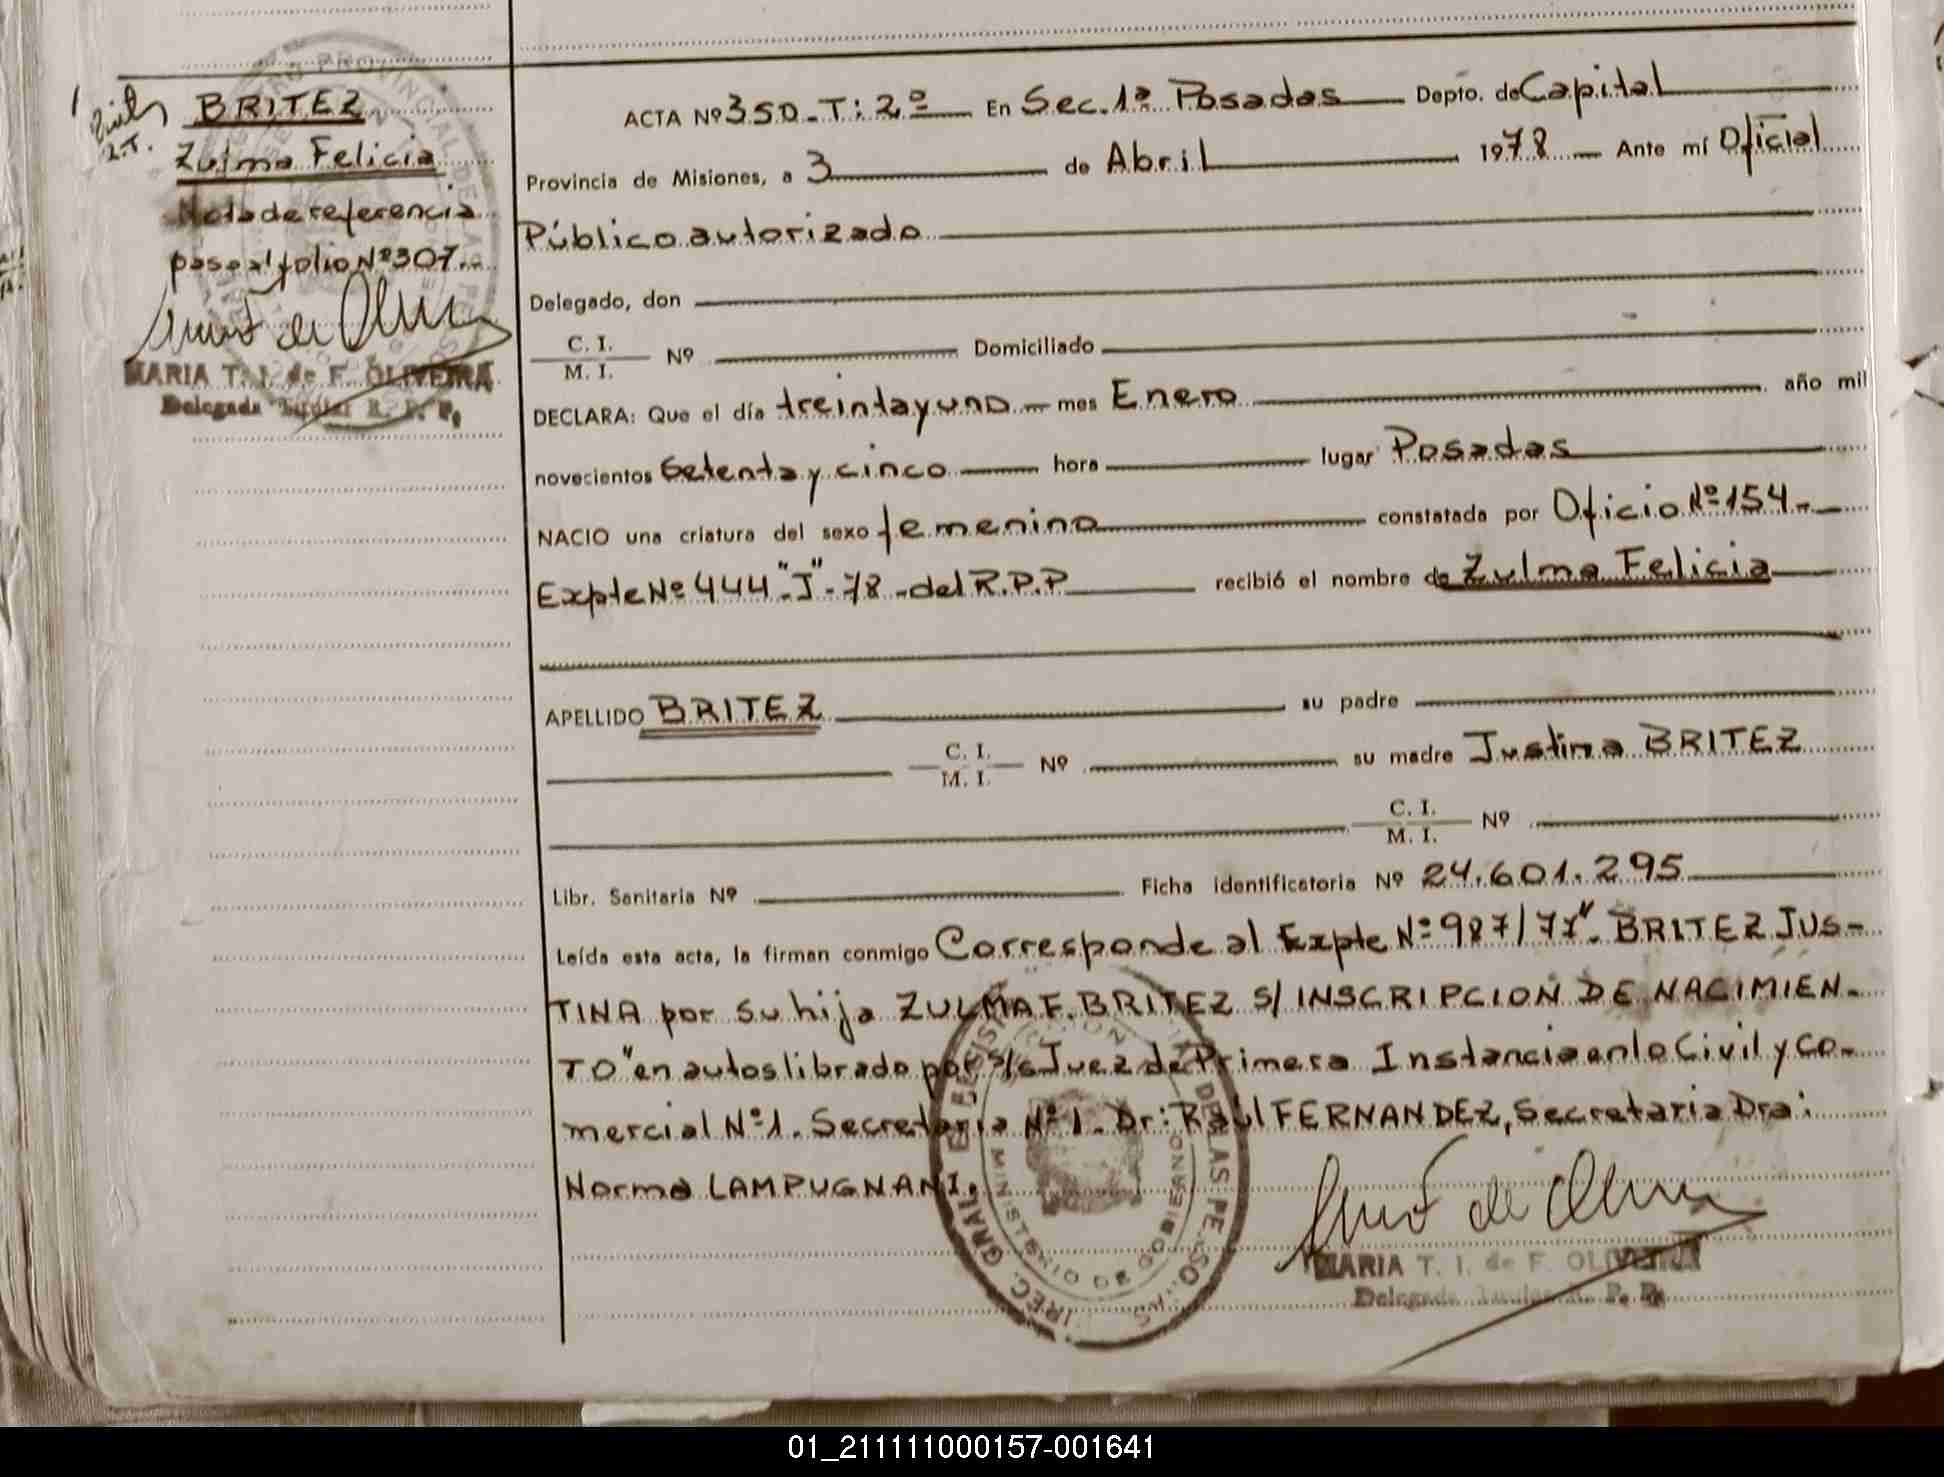 BRITEZ
Zulma Felicia
Nota de referencia
pasa al folio Nº 307.
MARIA T. I. de F. OLIVEIRA
Delegada Titular R. P. P.
ACTA Nº 350 - T: 2º En Sec. 1ª Posadas Depto. de Capital
Provincia de Misiones, a 3 de Abril 1978 Ante mí Oficial
Público autorizado
Delegado, don
C. I.
M. I. Nº Domiciliado
DECLARA: Que el día treinta y uno mes Enero año mil
novecientos Setenta y cinco hora lugar Posadas
NACIO una criatura del sexo femenino constatada por Oficio Nº 154.
Expte Nº 444 "J" - 78 - del R.P.P recibió el nombre de Zulma Felicia
APELLIDO BRITEZ su padre
C. I.
M. I. Nº su madre Justina BRITEZ
C. I.
M. I. Nº
Libr. Sanitaria Nº Ficha identificatoria Nº 24.601.295
Leída esta acta, la firman conmigo Corresponde al Expte Nº 987/77". BRITEZ JUS-
TINA por su hija ZULMA F. BRITEZ S/ INSCRIPCION DE NACIMIEN-
TO" en autos librado por S/s Juez de Primera Instancia en lo Civil y Co-
mercial Nº 1. Secretaria Nº 1. Dr: Raúl FERNANDEZ, Secretaria Dra:
Norma LAMPUGNANI.
MINISTERIO DE GOBIERNO
MARIA T. I. de F. OLIVEIRA
Delegada Titular R. P. P.
01_211111000157-001641